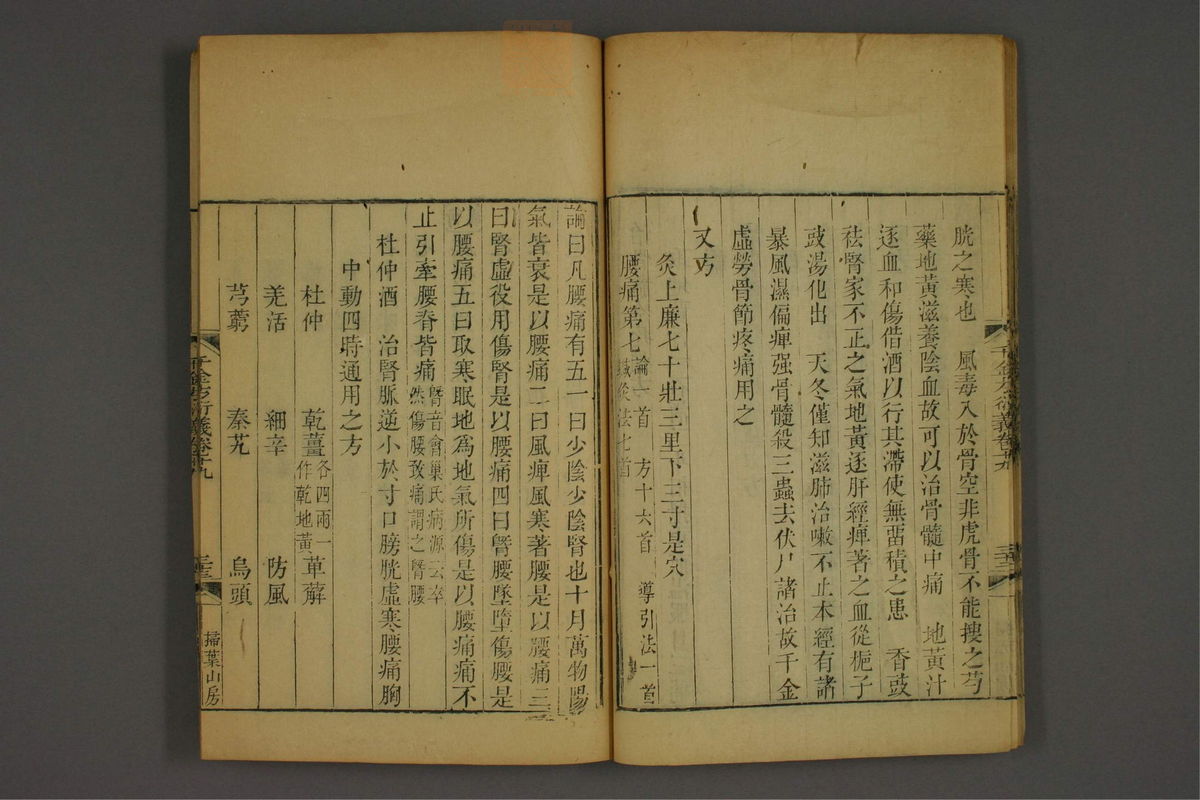 胱之寒也　風毒入於骨空非虎骨不能搜之芎
藥地黃滋養陰血故可以治骨髓中痛　地黃汁
逐血和傷借酒以行其滯使無畱積之患　香豉
祛腎家不正之氣地黃逐肝經痺著之血從梔子
豉湯化出　天冬僅知滋肺治嗽不止本經有諸
暴風濕偏痺强骨髓殺三蟲去伏尸諸治故千金
虛勞骨節疼痛用之
又方
灸上廉七十壯三里下三寸是穴
腰痛第七論一首　方十六首　導引法一首
鍼灸法七首
論曰凡腰痛有五一曰少陰少陰腎也十月萬物陽
氣皆衰是以腰痛二曰風痺風寒著腰是以腰痛三
曰腎虛役用傷腎是以腰痛四曰䐴腰墜墮傷腰是
以腰痛五曰取寒眠地爲地氣所傷是以腰痛痛不
止引牽腰脊皆痛䐴音會巢氏病源云卒
然傷腰致痛謂之䐴腰
杜仲酒　治腎脈逆小於寸口膀胱虛寒腰痛胸
中動四時通用之方
杜仲　乾薑各四兩一作乾地黃　萆薢
羌活　細辛　防風
芎藭　秦艽　烏頭
掃葉山房